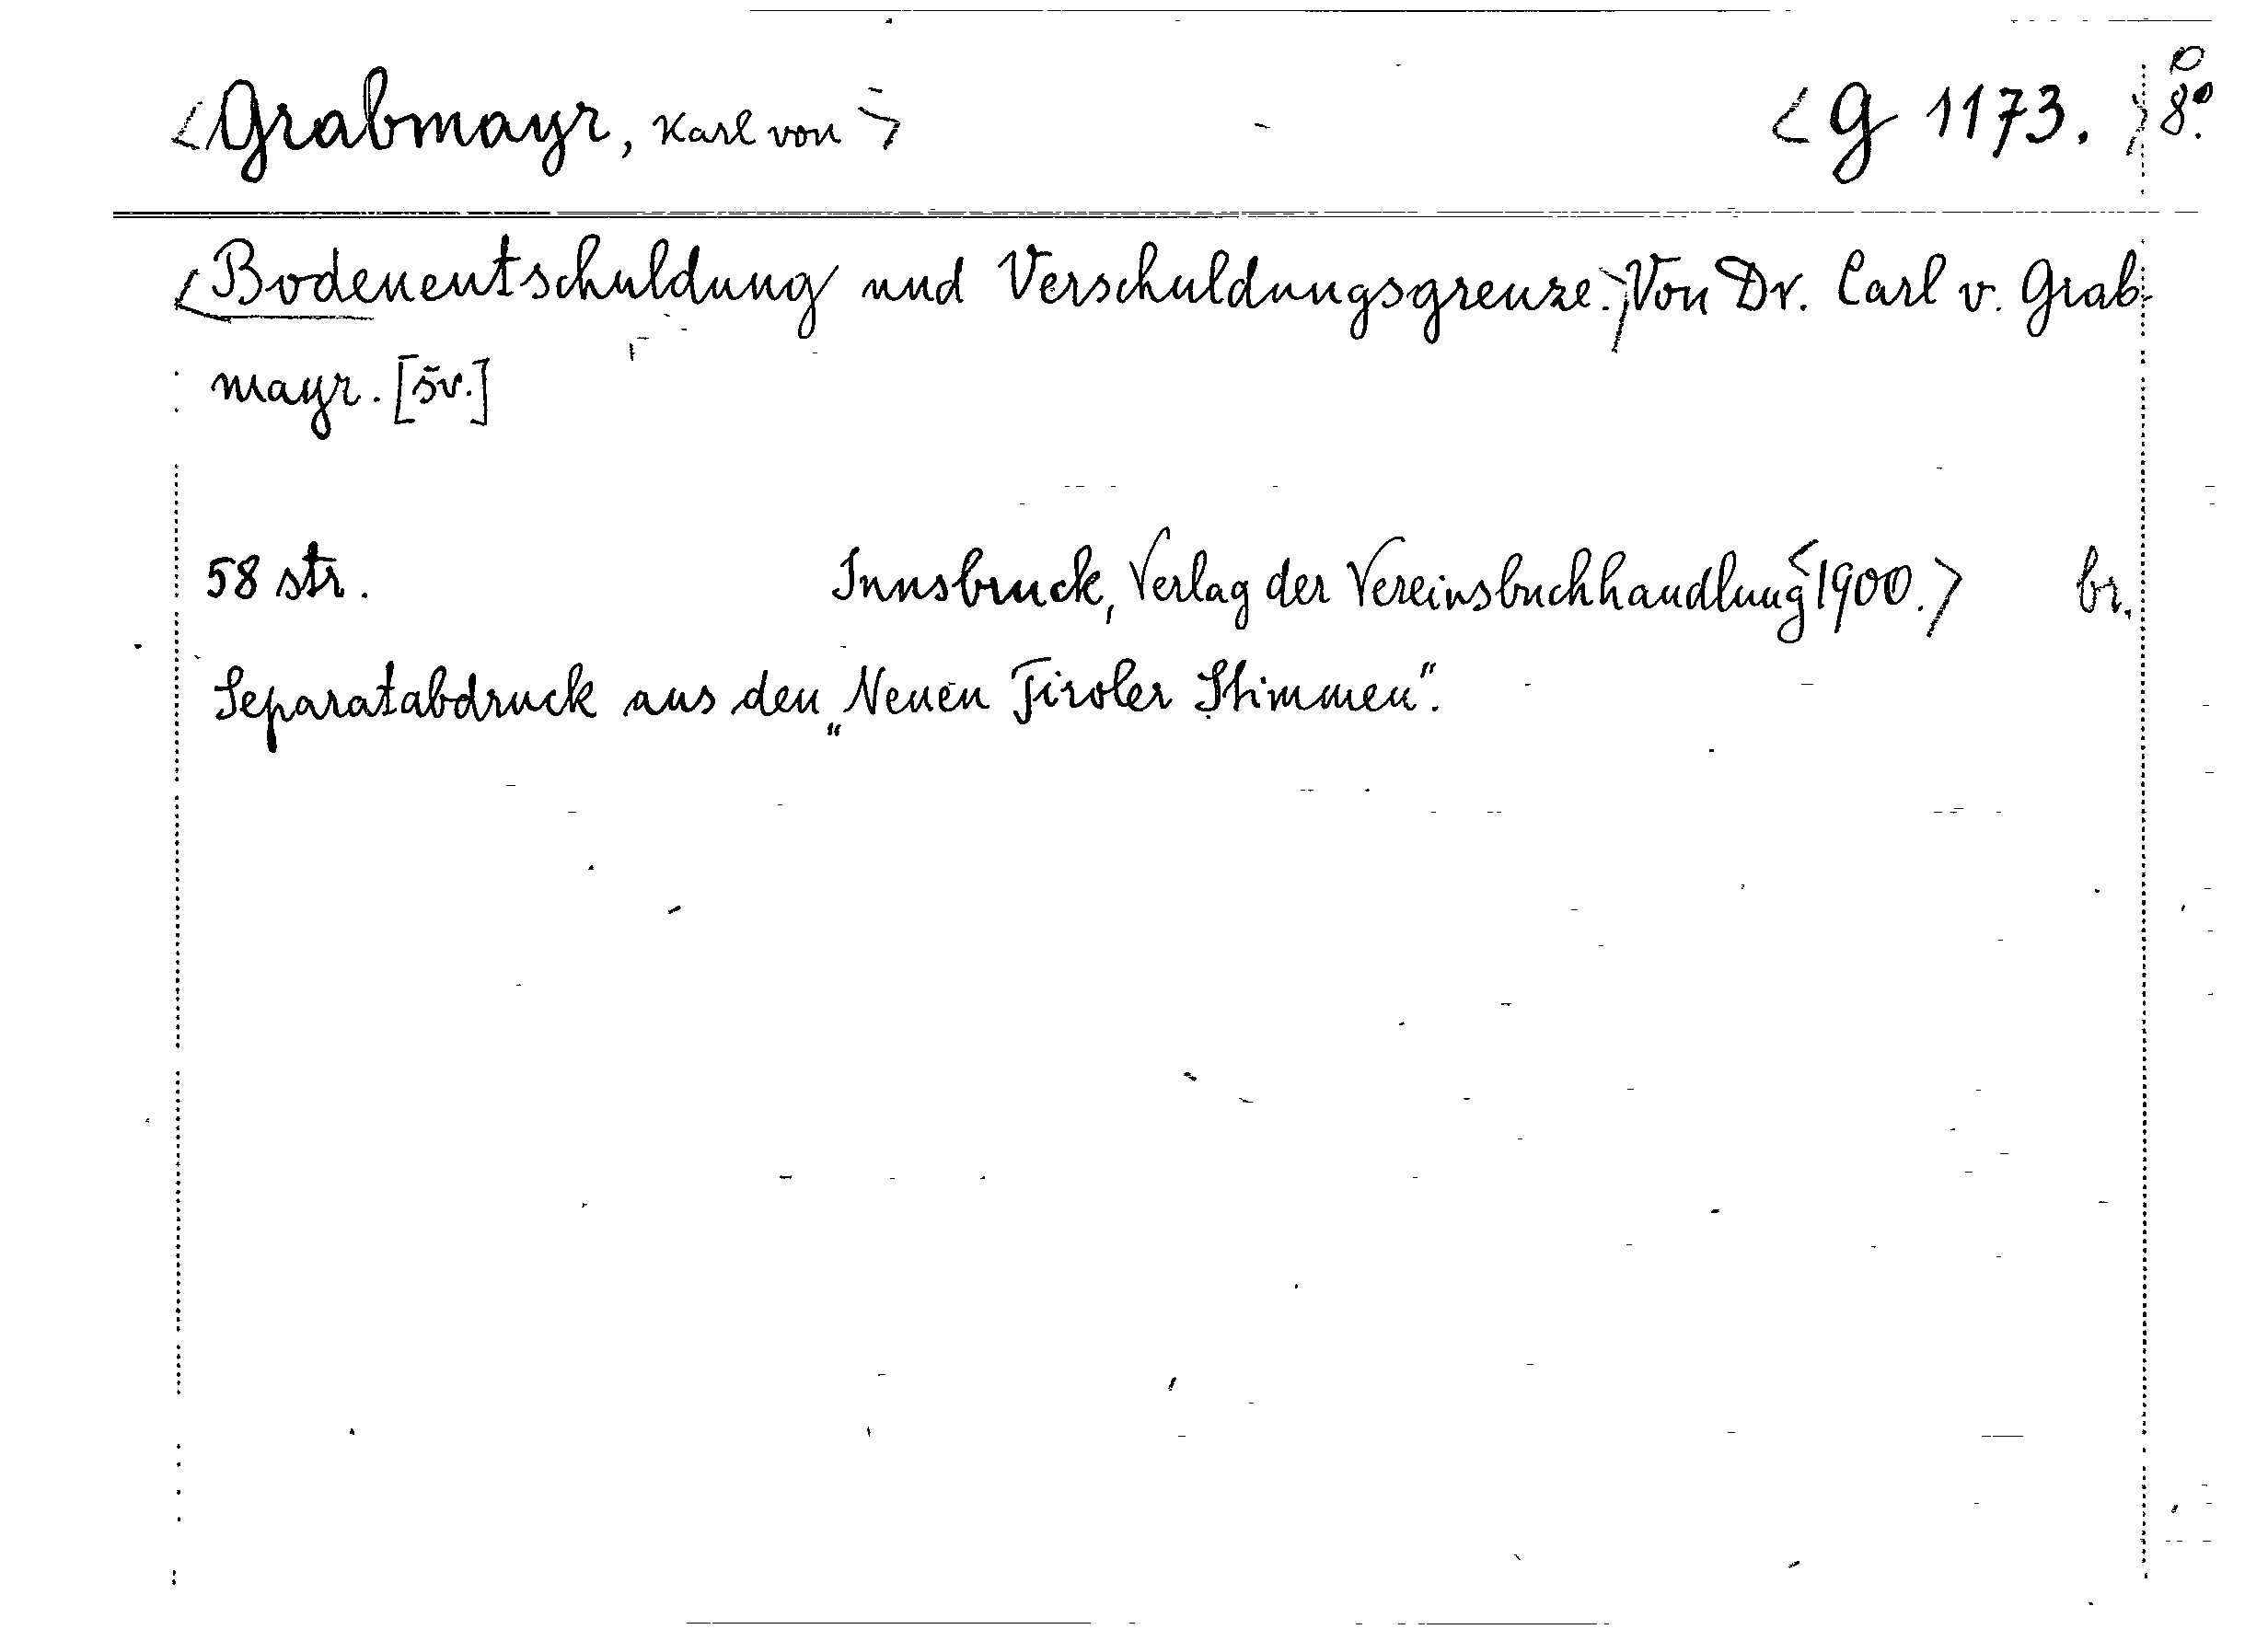 <Grabmayr, Karl von> <G 1173.> 8º.
<Bodenentschuldung und Verschuldungsgrenze.> Von Dr. Carl v. Grab-
mayr. [šv.]
58 str. Innsbruck, Verlag der Vereinsbuchhandlung <1900.> br.
Separatabdruck aus den „Neuen Tiroler Stimmen“.